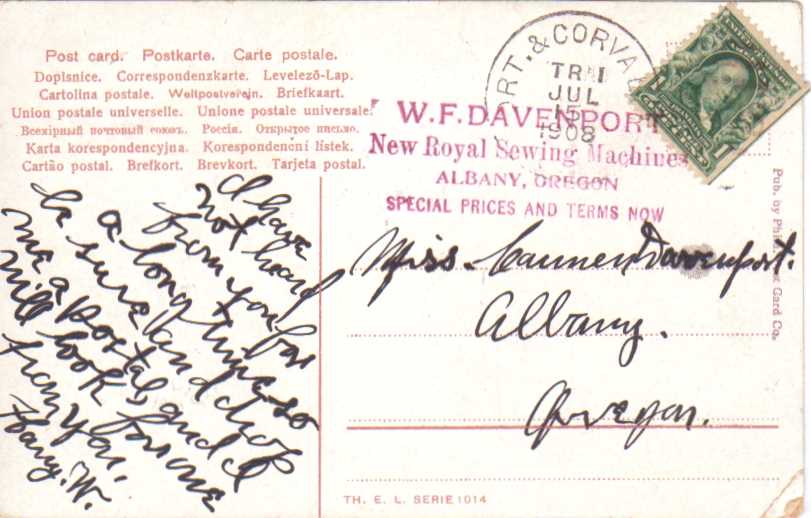 Post card. Postkarte. Carte postale.
Dopisnice. Correspondenzkarte. Levelező-Lap.
Cartolina postale. Weltpostverein. Briefkaart.
Union postale universelle. Unione postale universale.
Всемірный почтовый союзъ. Россія. Открытое письмо.
Karta korespondencyjna. Korespondenční lístek.
Cartão postal. Brefkort. Brevkort. Tarjeta postal.
ORT. & CORVA
TR 1
JUL
15
1908
W. F. DAVENPORT
New Royal Sewing Machines
ALBANY, OREGON
SPECIAL PRICES AND TERMS NOW
I have
not heard
from you for
a long time so
be sure and drop
me a postal, and I
will look for one
from you.
Harry. W.
Miss. Carmen Davenport.
Albany.
Oregon.
Pub. by Phi Card Co.
TH. E. L. SERIE 1014